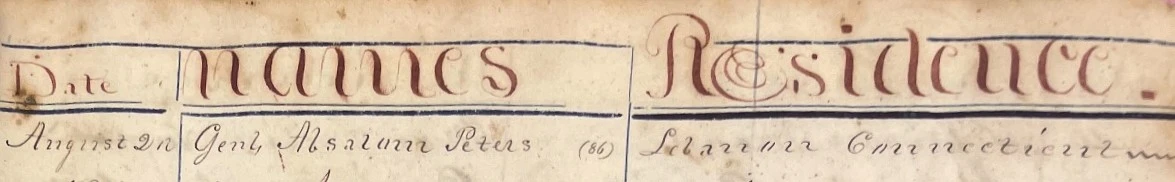 Date names Residence.
August 2n Genl, Absalom Peters (86) Lebanon Connecticut